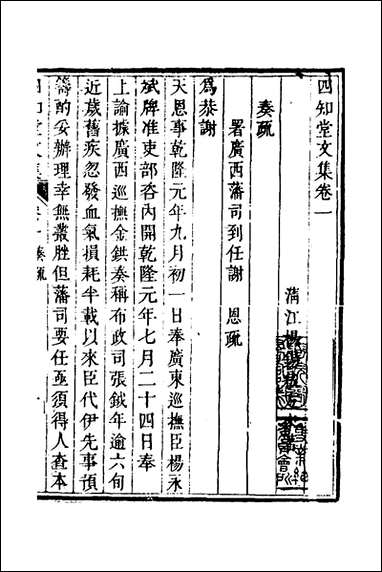 四知堂文集卷一
清江楊錫紱
奏疏
署廣西藩司到任謝　恩疏
為恭謝
天恩事乾隆元年九月初一日奉廣東巡撫臣楊永
斌牌准吏部咨內開乾隆元年七月二十四日奉
上諭據廣西巡撫金鉷奏稱布政司張鉞年逾六旬
近歲舊疾忽發血氣損耗半載以來臣代伊先事預
籌酌妥辦理幸無叢脞但藩司要任亟須得人查本
四知堂文集 卷一奏疏